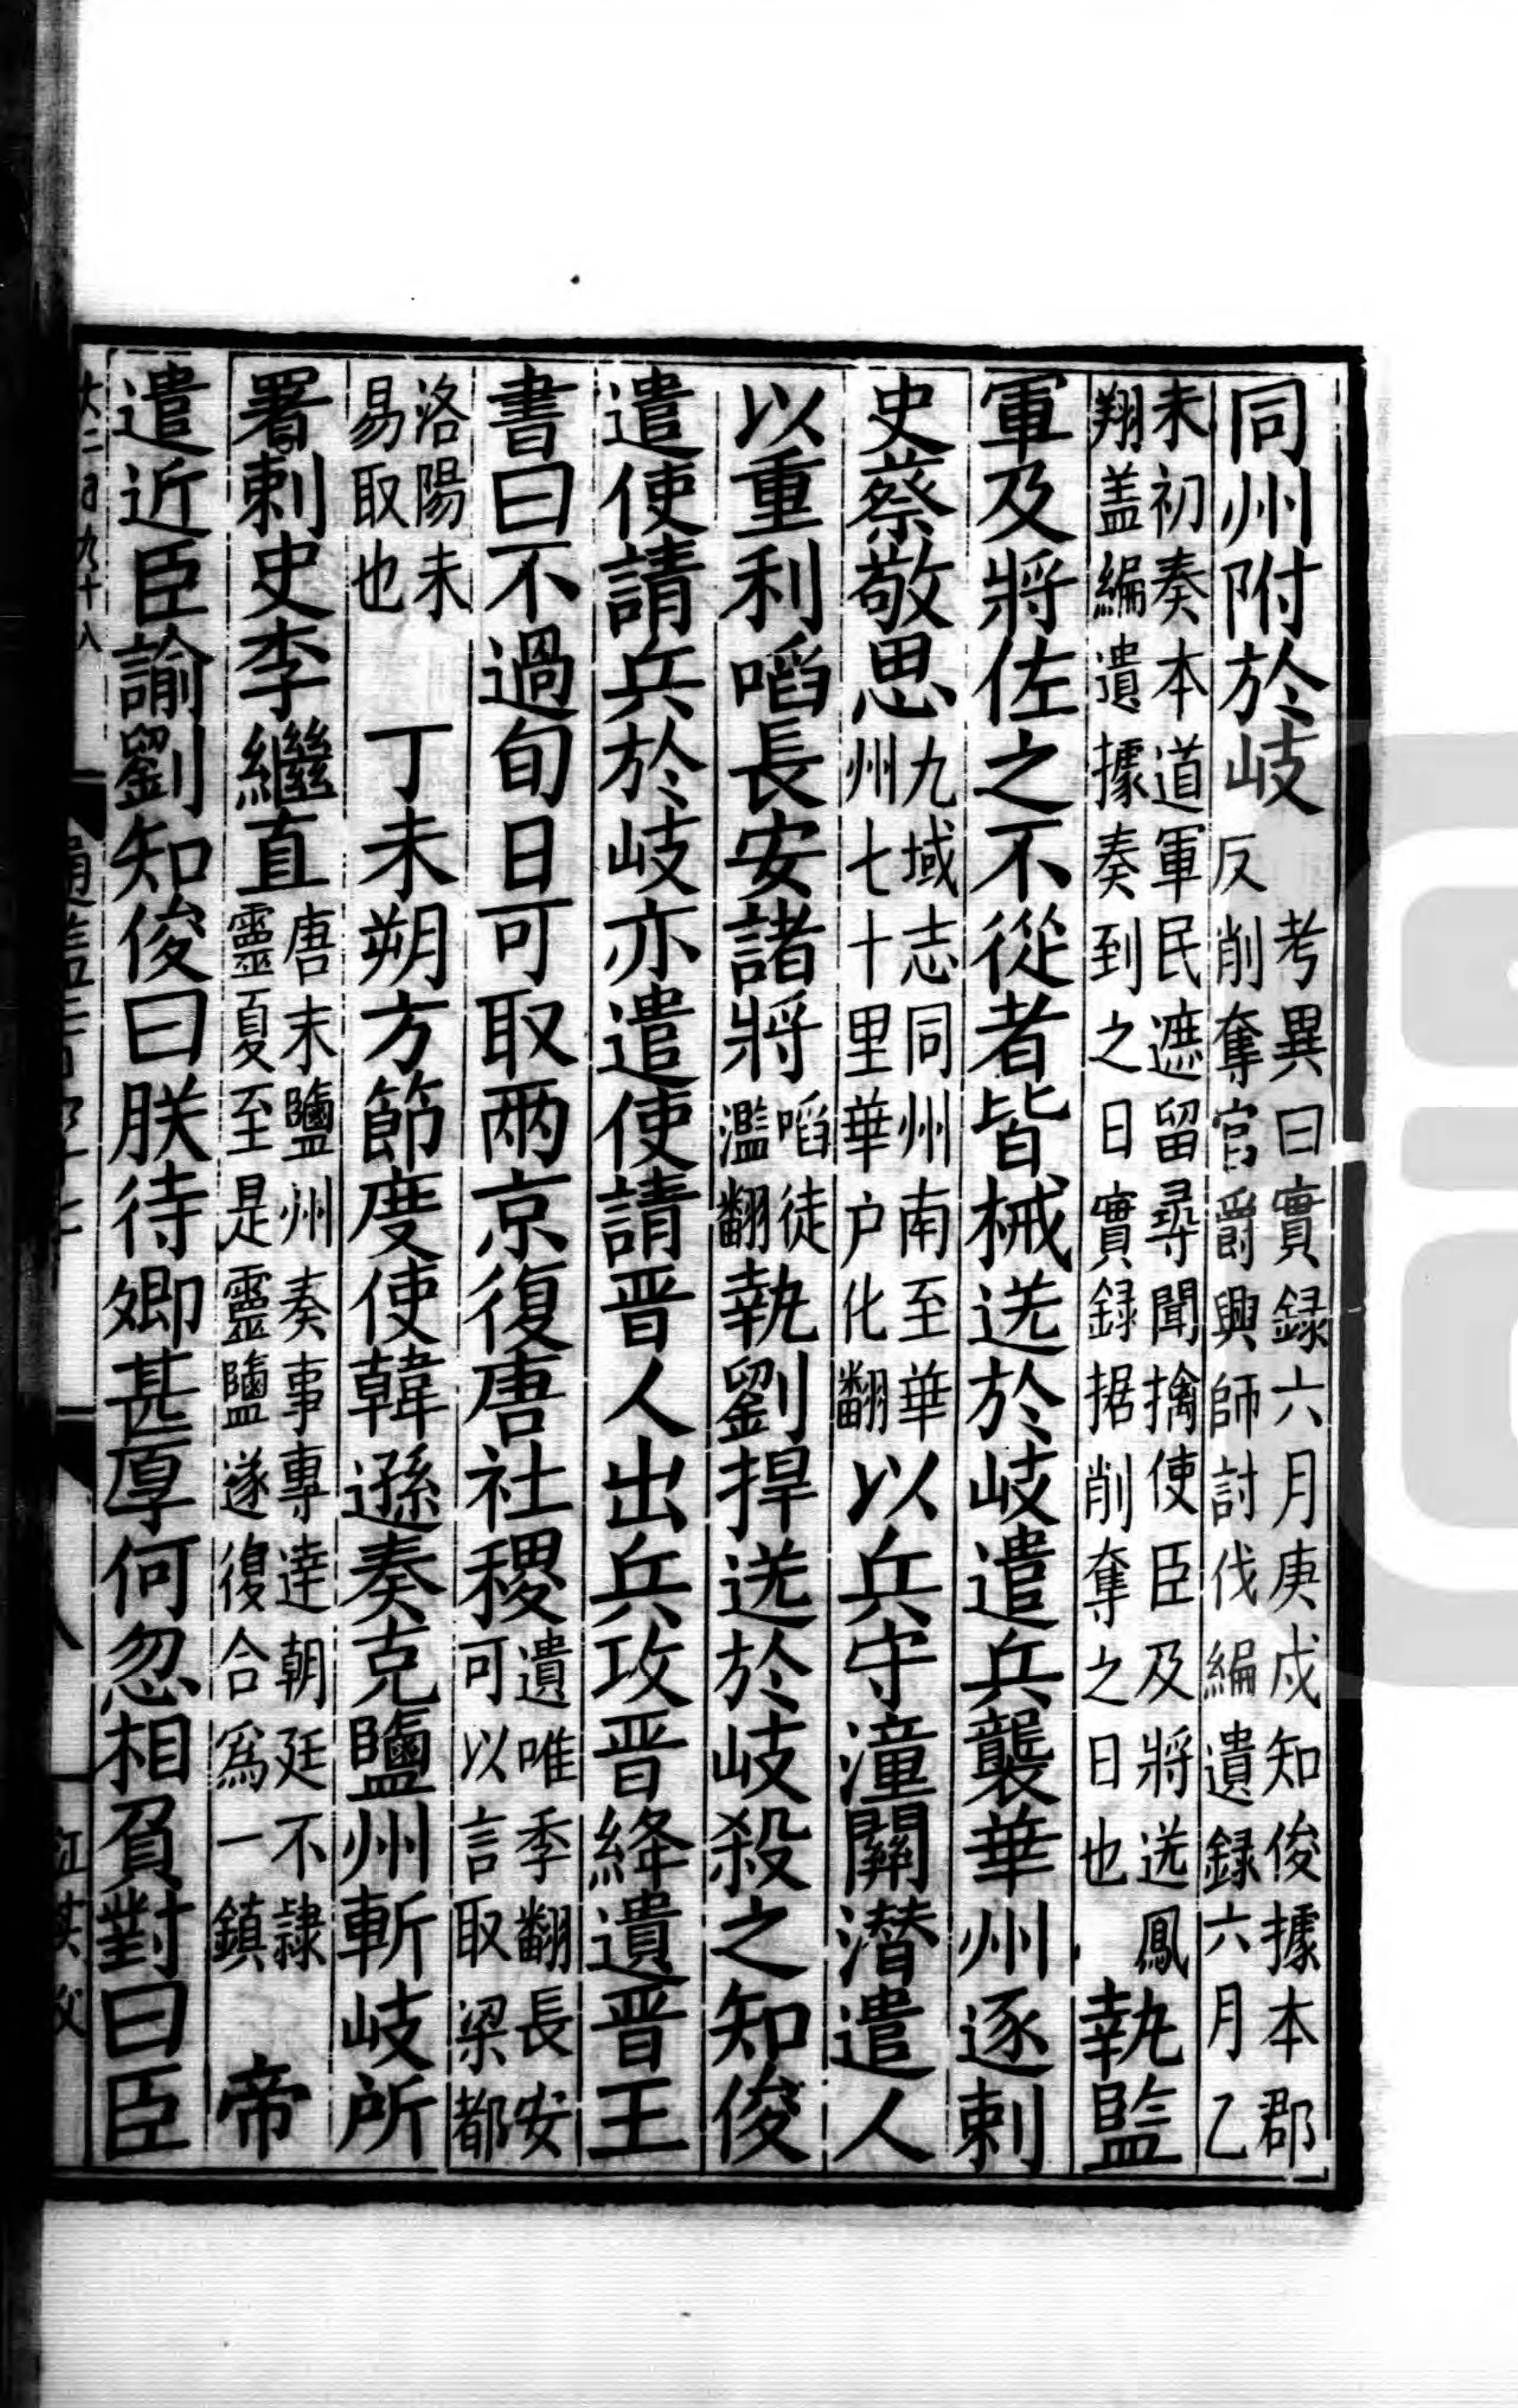 同州附於岐考異曰實録六月庚戍知俊據本郡反削奪官爵興師討伐編遺録六月乙
未初奏本道軍民遮留尋聞擒使臣及將送鳳翔盖編遺據奏到之日實録据削奪之日也執監
軍及將佐之不從者皆械送於岐遣兵襲華州逐刺
史蔡敬思九域志同州南至華州七十里華户化翻以兵守潼關潜遣人
以重利啗長安諸將啗徒濫翻執劉捍送於岐殺之知俊
遣使請兵於岐亦遣使請晋人出兵攻晋絳遺晋王
書曰不過旬日可取兩京復唐社稷遺唯季翻長安可以言取梁都
洛陽未易取也丁未朔方節度使韓遜奏克鹽州斬岐所
署刺史李繼直唐末鹽州奏事專達朝廷不隷靈夏至是靈鹽遂復合爲一鎮帝
遣近臣諭劉知俊曰朕待卿甚厚何忽相負對曰臣